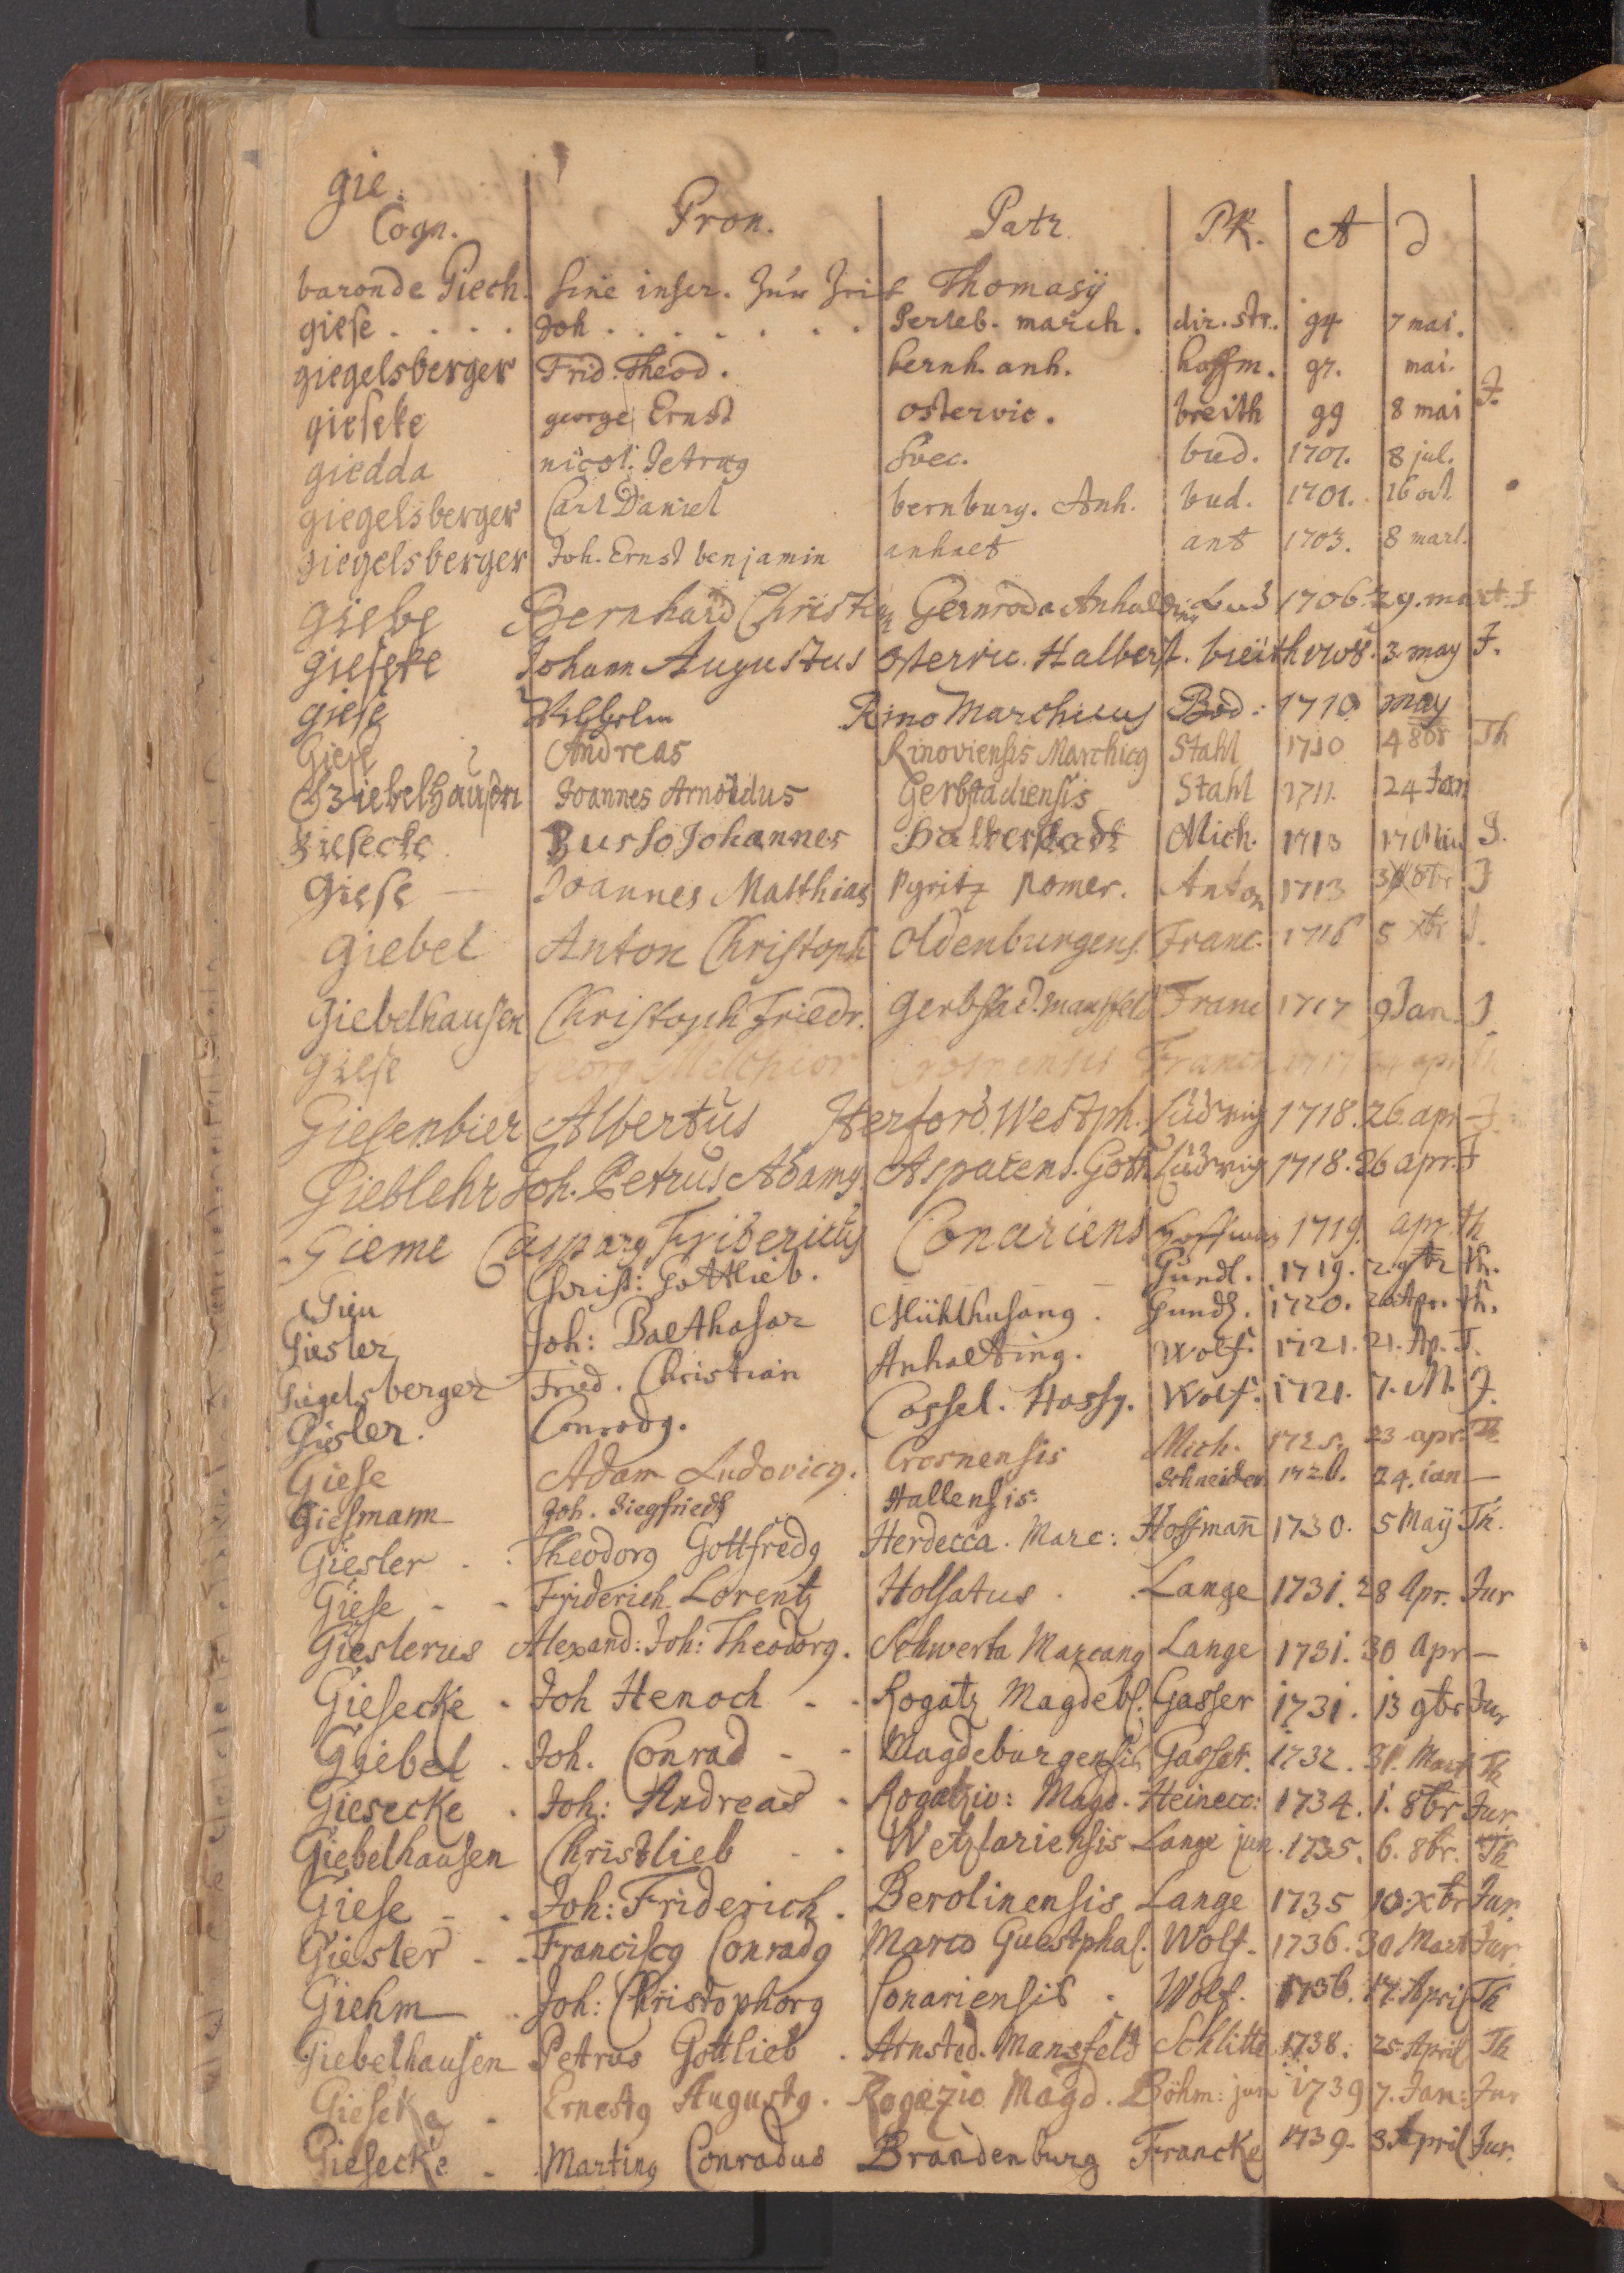 gie.
Cogn. Pron. Patr. PR. A D
baron de Giech. sine inscr. Thomasÿ
giese . . . . Joh . . . . . . . Perleb. march. dir. str. 94 7 mai.
giegelsberger Frid. Theod. bernh. anh. hoffm. 97. mai.
gieseke george Ernst ostervic. breith 99 8 mai J.
giedda nicol. Petrus Svec. bud. 1701. 8 jul.
giegelsberger Carl Daniel bernburg. Anh. bud. 1701. 16 oct.
giegelsberger Joh. Ernst benjamin anhalt ant 1703. 8 mart.
Giebe Bernhard Christian Gernroda Anhaldin Lud 1706. 29. mart. J
gieseke Johann Augustus Ostervic. Halberst. breith 1708. 3. may J.
giese Wilhelm Rino Marchicus Bod: 1710 may
Giese Andreas Rinoviensis Marchicus Stahl 1710 4 8br Th
Giebelhausen Joannes Arnoldus Gerbstadiensis Stahl 1711. 24 Jan
Giesecke Busso Johannes Halberstadt Mich. 1713 17 Mai J.
Giese Joannes Matthias Pyritz Pomer. Anton 1713 8br J
Giebel Anton Christoph Oldenburgens. Franc. 1716 5 Xbr J.
Giebelhausen Christoph Friedr. Gerbstad. mansfeld Franc 1717 9 Jan. J.
Giese Georg Melchior Crosnensis Franck 1717 apr
Giesenbier Albertus Herford. Westph. Ludwig 1718. 26. apr. J.
Gieblehr Joh. Petrus Adamus Aspacens. Goth. Ludwig 1718. 26 apr. J
Gieme Casparus Fridericus Conariens Hoffman 1719. apr. th
Gieu Christ: Gottlieb. — — Gundl. 1719. 2. 9br th.
Giesler Joh: Balthasar Mühlhusanus. Gundl. 1720. 26. Apr. th.
Giegelsberger Fried. Christian Anhaltinus. Wolf. 1721. 21. Ap. J.
Gisler. Conradus. Cassel. Hassus. Wolf. 1721. 7. M. J.
Giese Adam Ludovicus. Crosnensis Mich. 1725. 23 apr. Th.
Giesmann Joh. Siegfriedt Hallensis. Schneider 24. ian —
Giesler . . Theodorus Gottfredus Herdecca. Marc: Hoffman̄ 1730. 5 Maÿ Th.
Giese - - Friderich Lorentz Holsatus . . Lange 1731. 28 Apr. Jur
Gieslerus Alexand: Joh: Theodorus. Schwerta Marcanus Lange 1731. 30 Apr —
Giesecke . Joh Henoch - - Rogatz Magdeb. Gasser 1731. 13 9br Jur
Giebel . Joh. Conrad - - Magdeburgensis Gasser. 1732. 31. Mart Th
Giesecke . Joh: Andreas . Rogatzio: Magd. Heinecc: 1734. 1. 8br Jur
Giebelhausen Christlieb . . Wetzlariensis Lange jun. 1735. 6. 8br. Th
Giese - . Joh: Friderich . Berolinensis Lange 1735 10. Xbr Jur.
Giesler - . Franciscus Conradus Marco Guestphal. Wolf. 1736. 30 Mart Jur.
Giehm . Joh: Christophorus Conariensis . Wolf. 1736. 17. April Th
Giebelhausen Petrus Gottlieb . Arnsted. Mansfeld Schlitte 1738. 25. April Th
Gieseke . Ernestus Augustus . Rogezio Magd. Böhm: jun 1739 7. Jan: Jur
Giesecke . Martinus Conradus Brandenburg Francke 1739. 3. April Jur.